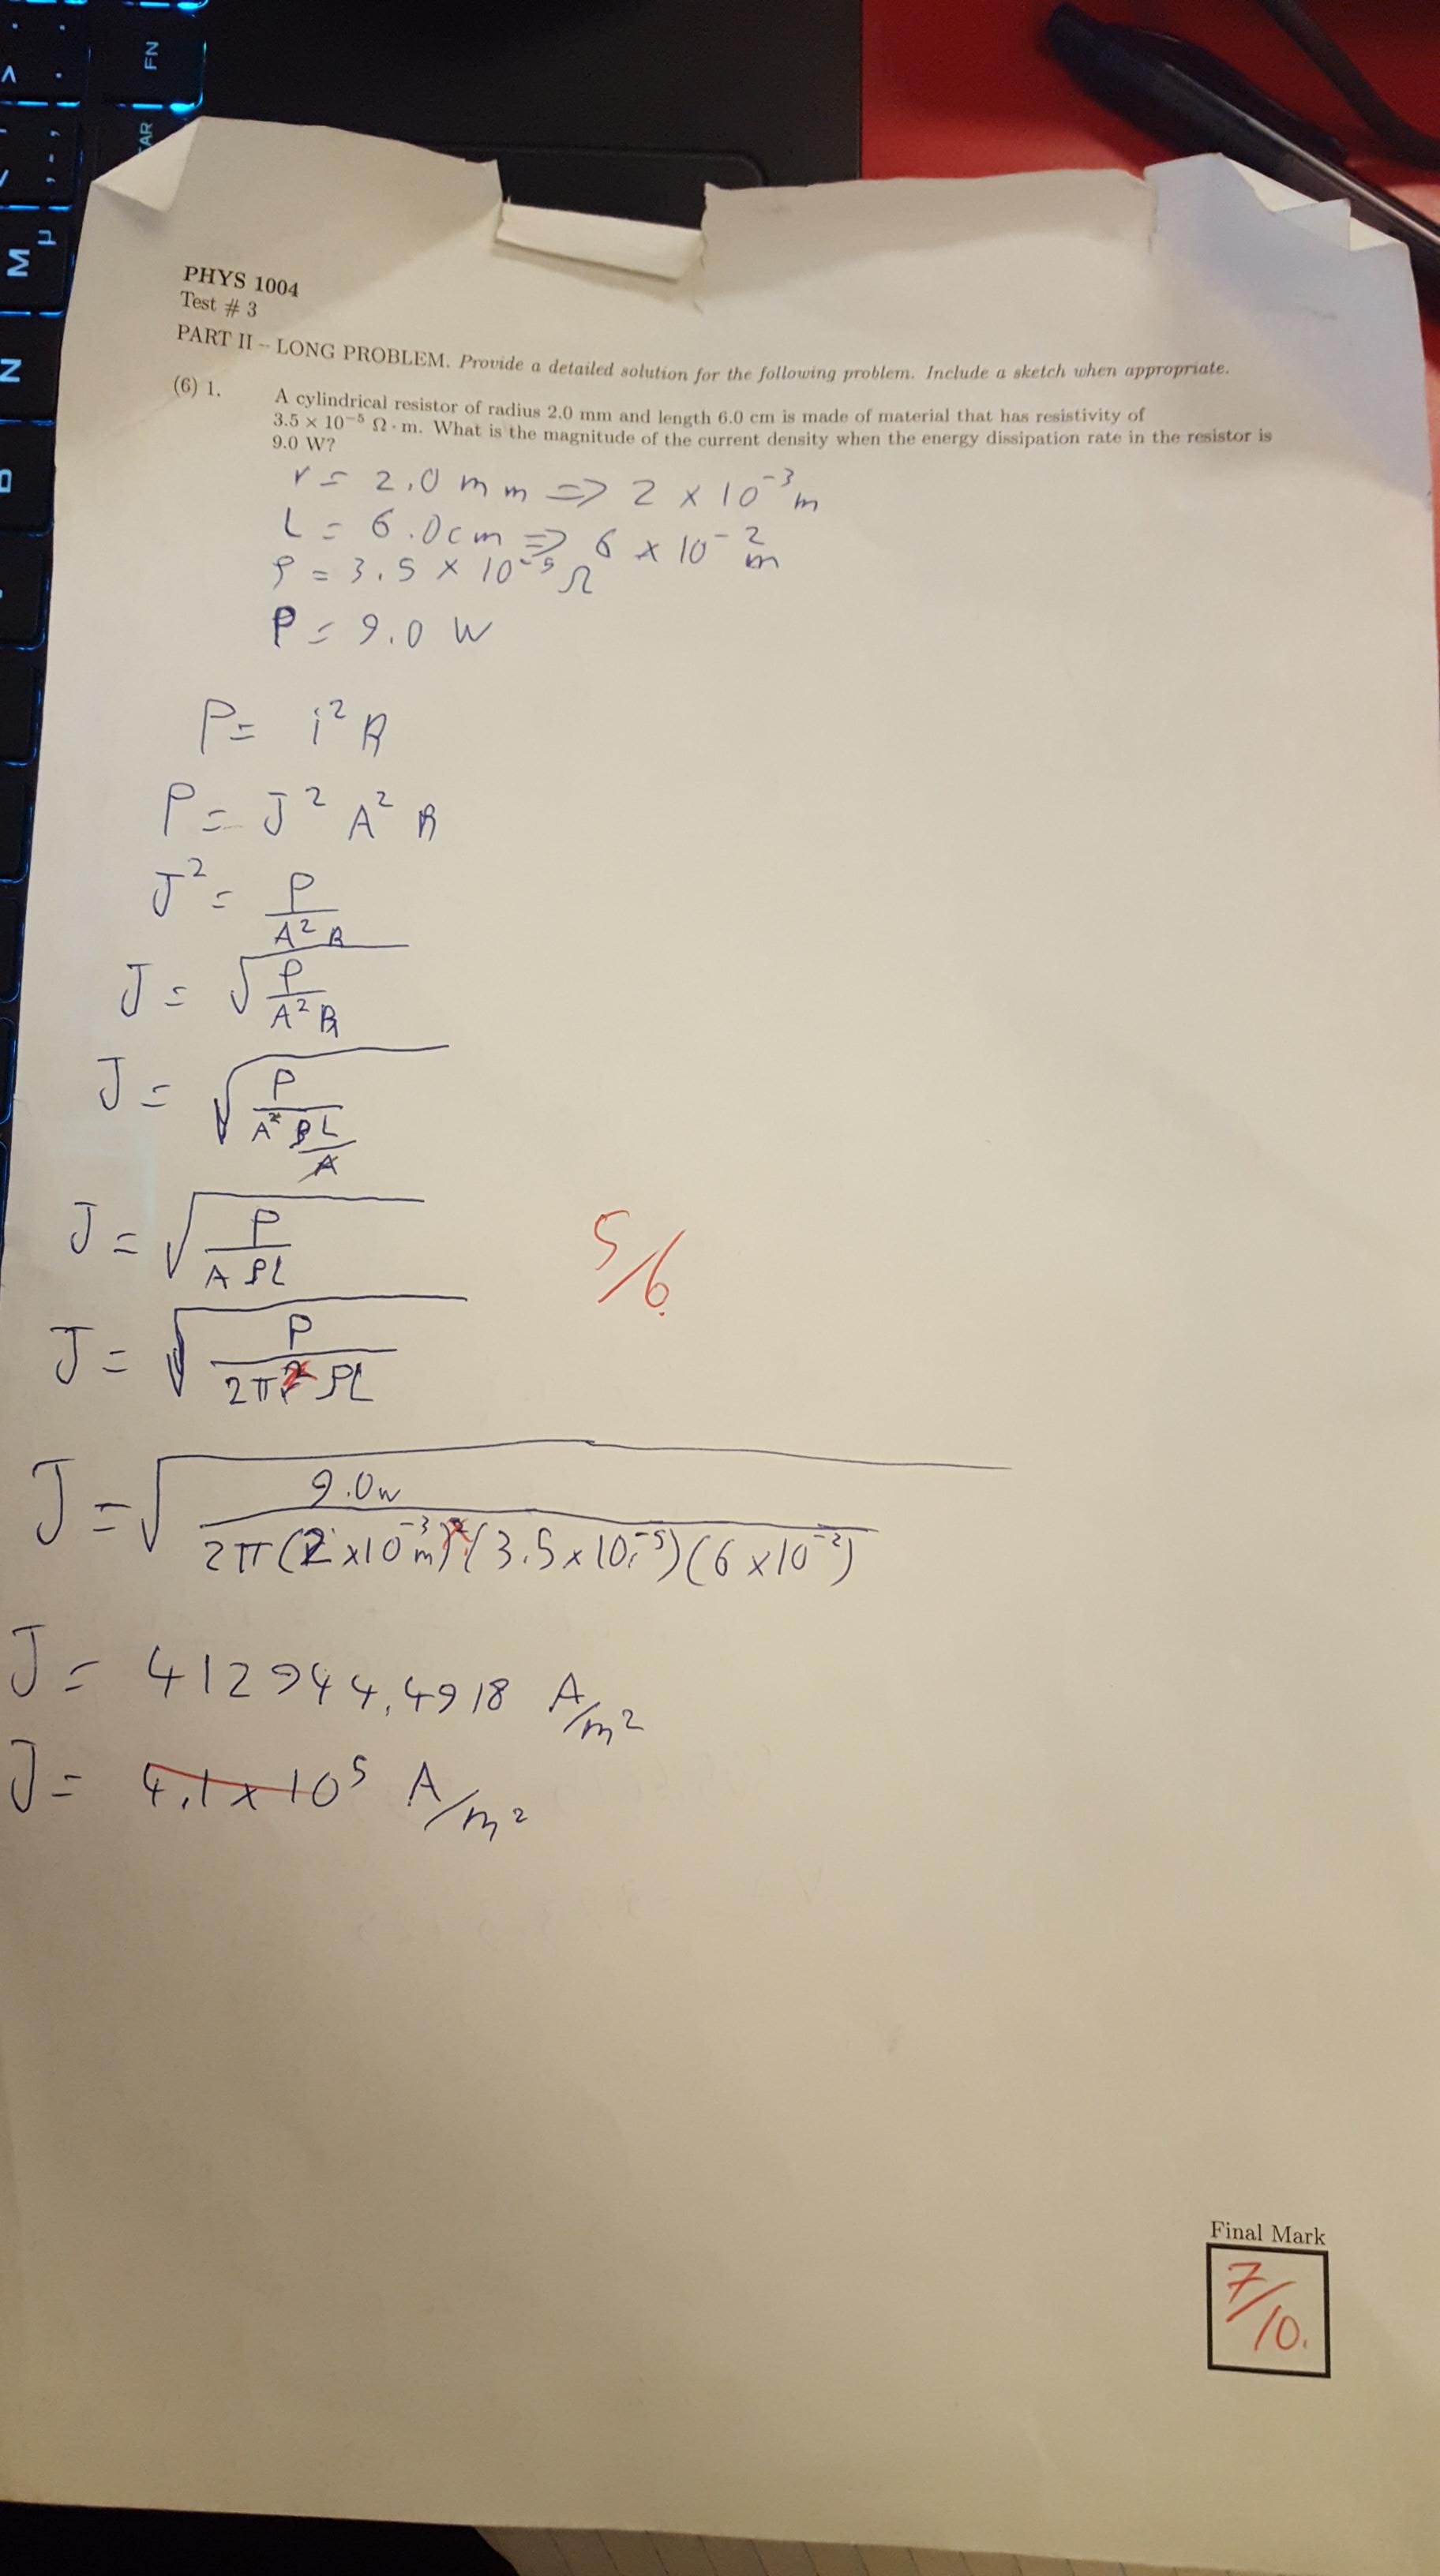 FN
M
µ
N
B
PHYS 1004
Test # 3
PART II – LONG PROBLEM. Provide a detailed solution for the following problem. Include a sketch when appropriate.
(6) 1. A cylindrical resistor of radius 2.0 mm and length 6.0 cm is made of material that has resistivity of
3.5 × 10⁻⁵ Ω · m. What is the magnitude of the current density when the energy dissipation rate in the resistor is
9.0 W?
r = 2.0 mm => 2 × 10⁻³ m
L = 6.0cm => 6 × 10⁻² m
ρ = 3.5 × 10⁻⁵ Ω
P = 9.0 W
P = i² R
P = J² A² R
J² = P / A² R
J = √(P / A² R)
J = √(P / (A² ρL/A))
J = √(P / A ρL)
5/6.
J = √(P / 2πr² ρL)
J = √(9.0w / 2π(2×10⁻³m)²(3.5×10⁻⁵)(6×10⁻²))
J = 412944.4918 A/m²
J = 4.1 × 10⁵ A/m²
Final Mark
7/10.